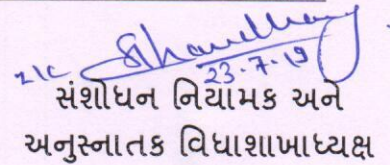 23.7.19
સંશોધન નિયામક અને
અનુસ્નાતક વિધાશાખાધ્યક્ષ